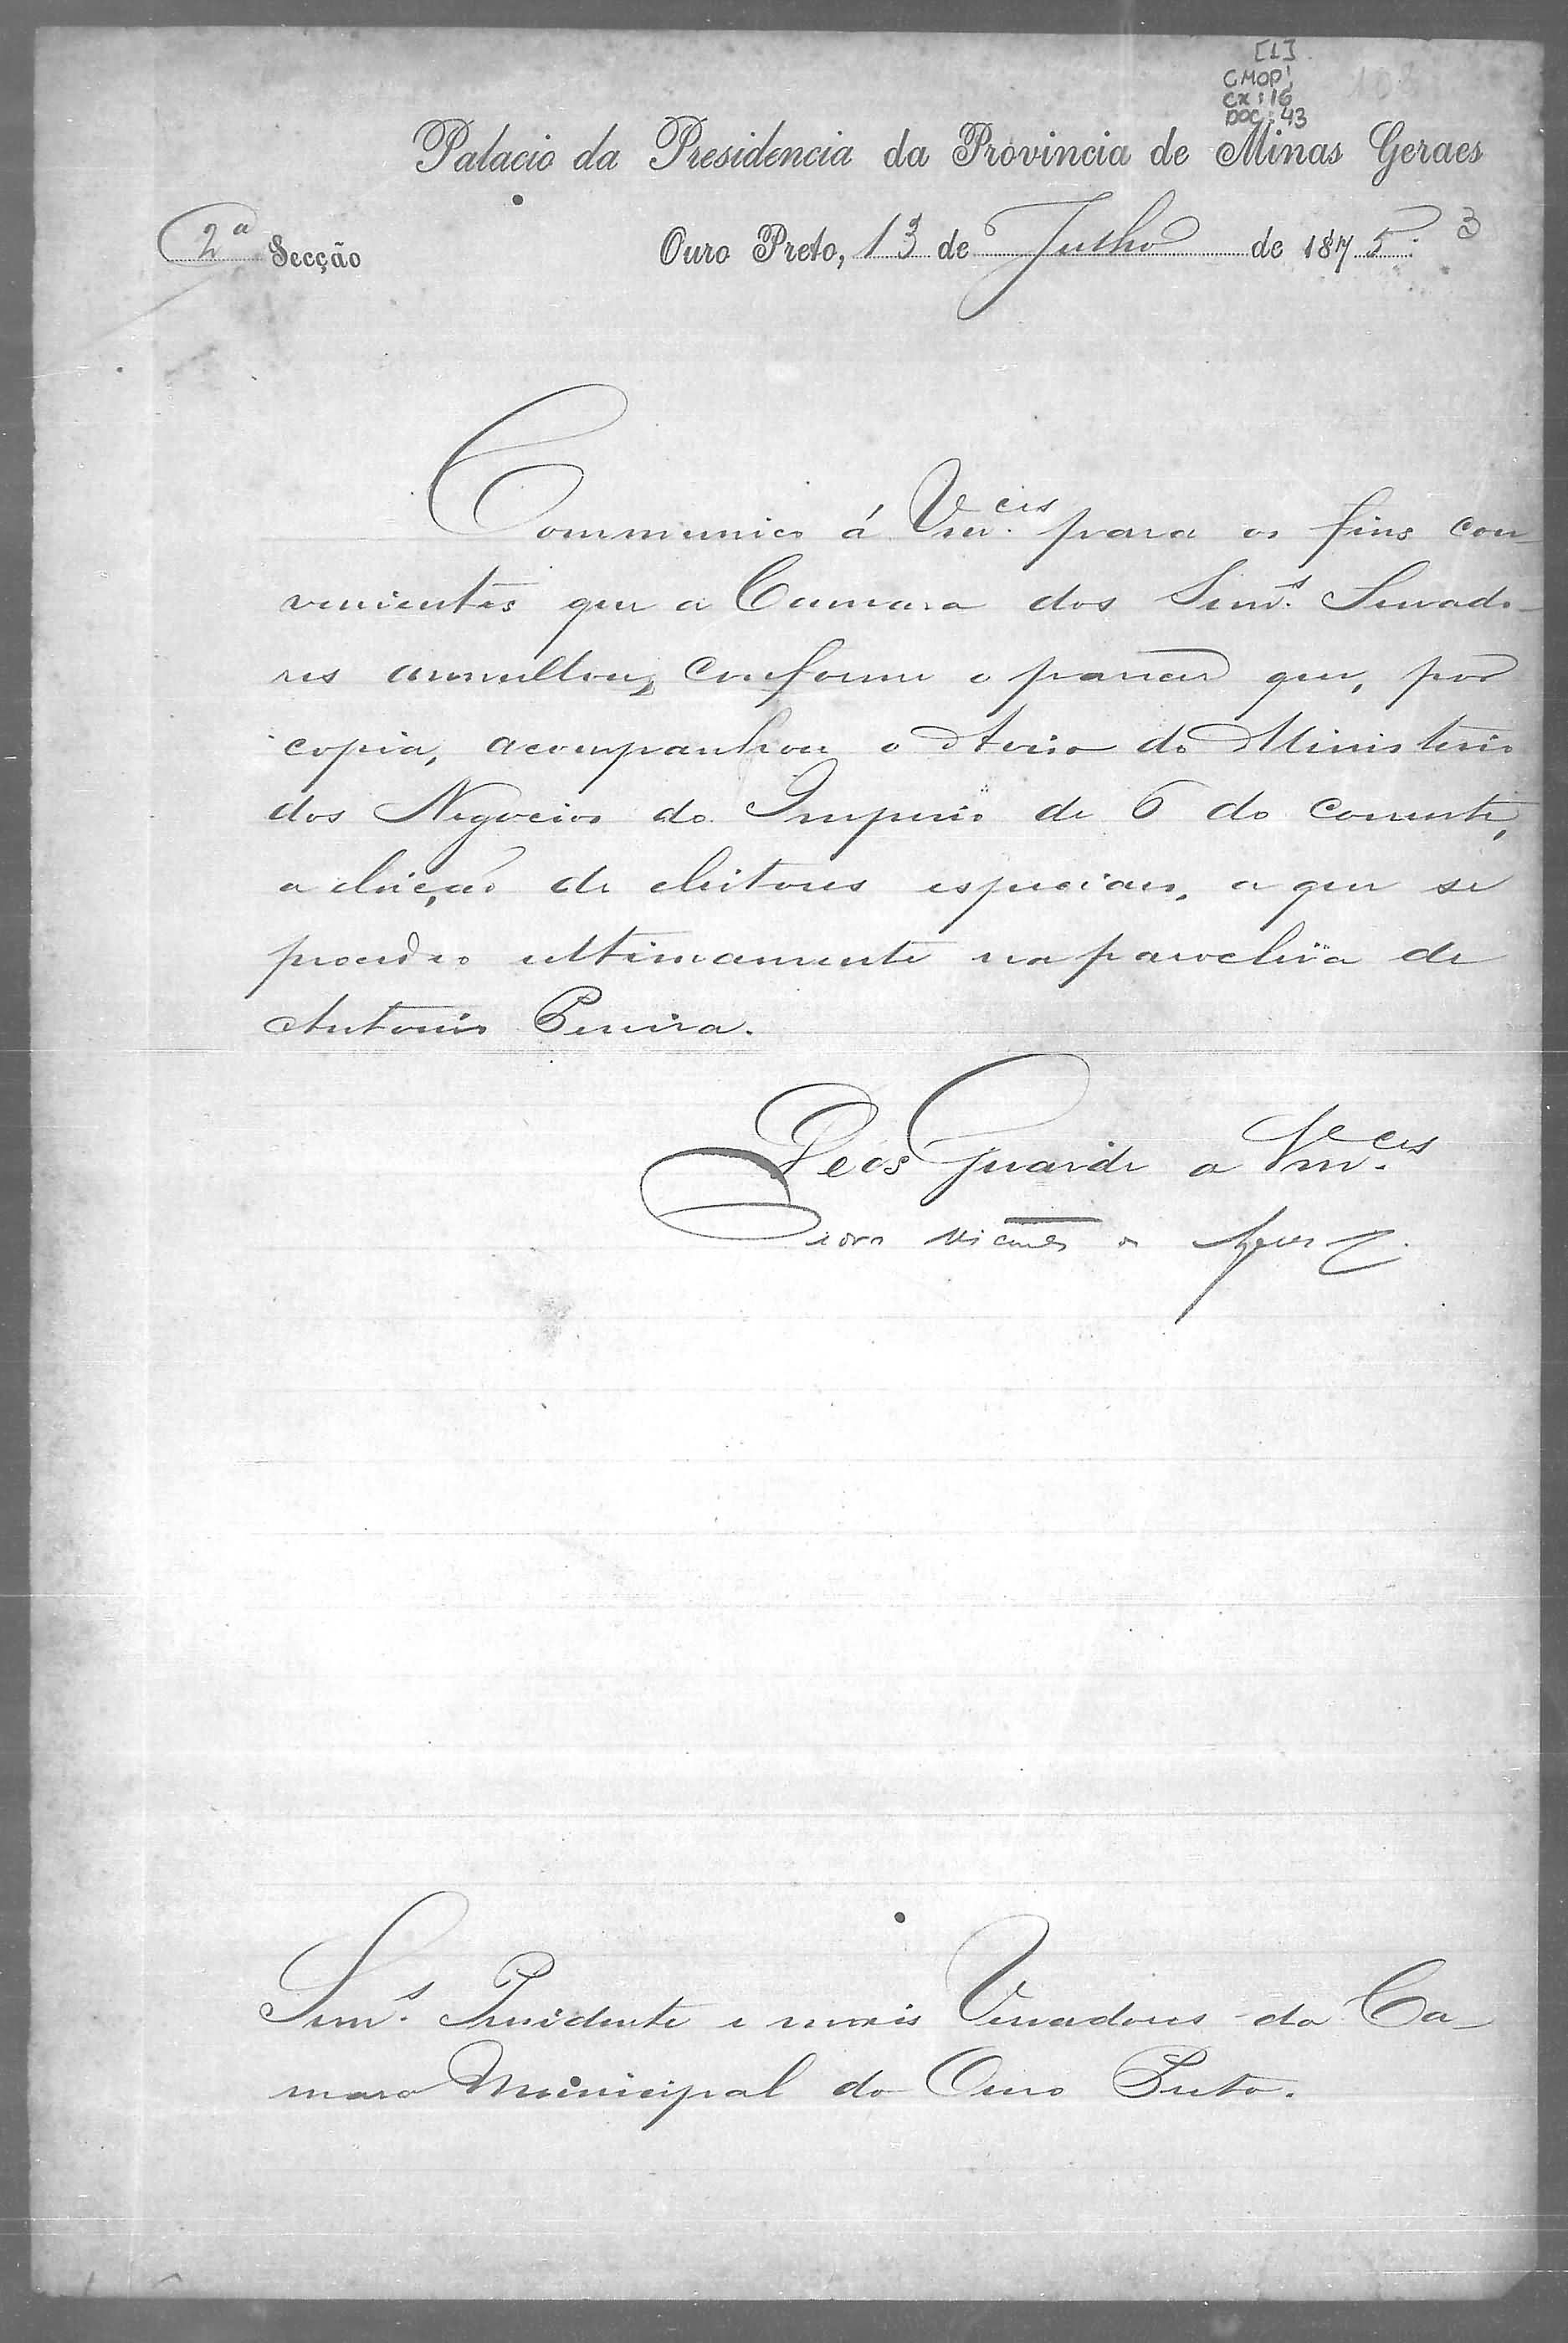 [1]
CMOP!
CX: 16
DOC: 43
Palacio da Presidencia da Provincia de Minas Geraes
2ª Secção
Ouro Preto, 13 de Julho de 1875. 3
Communico á Vm.ces para os fins con-
venientes que a Camara dos Senr.s Senado-
res annullou, conforme o parecer que, por
copia, acompanhou o Aviso do Ministerio
dos Negocios do Imperio de 6 do corrente,
a eleição de eleitores especiaes, a que se
procedeo ultimamente na parochia de
Antonio Pereira.
Deos Guarde a Vm.ces
Pedro Vicente de Azevedo
Senr.s Presidente e mais Vereadores da Ca-
mara Municipal do Ouro Preto.